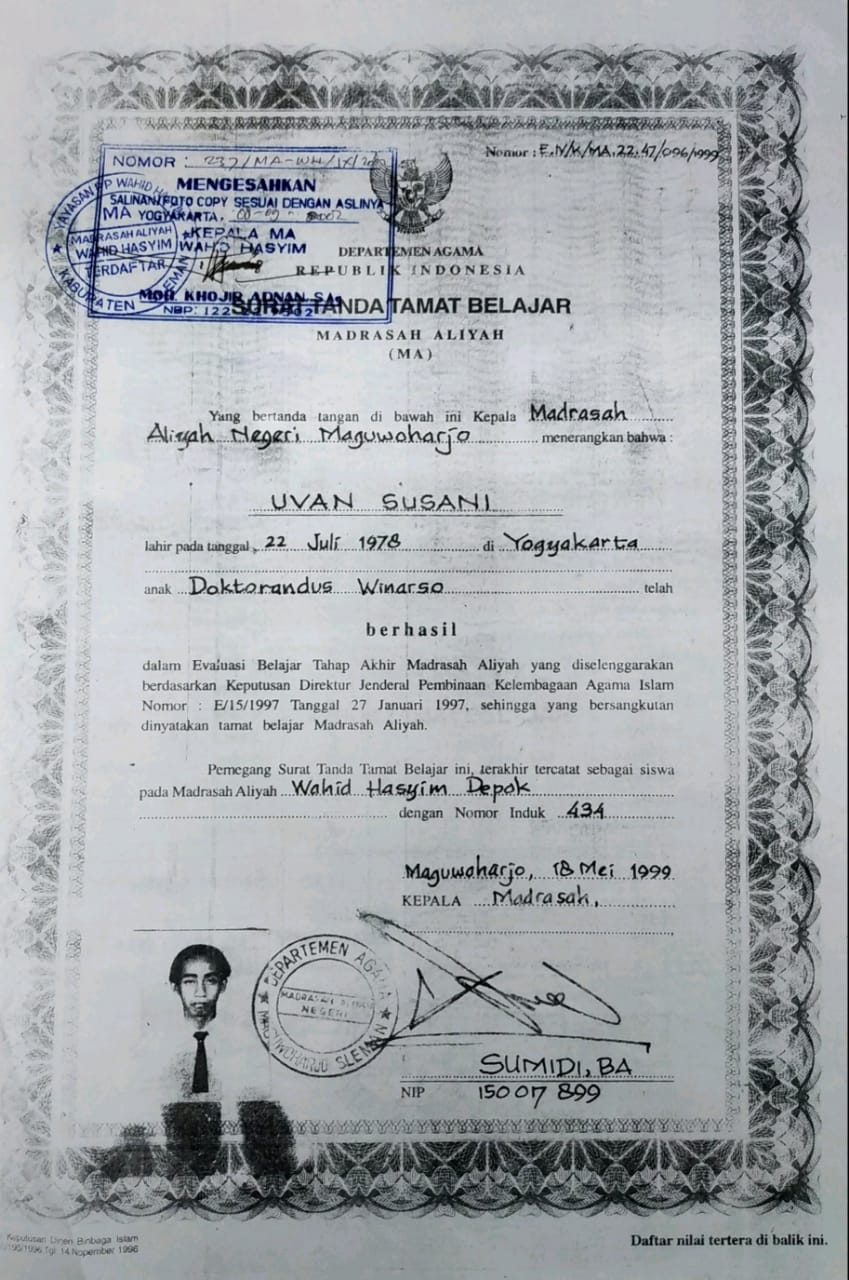 Nomor : E.IV/K/MA.22.47/096/1999
NOMOR : 237/MA-WH/IX/
MENGESAHKAN
SALINAN/FOTO COPY SESUAI DENGAN ASLINYA
MA YOGYAKARTA, 2002
KEPALA MA
WAHID HASYIM
MOH. KHOJIR ADNAN, SAg
NBP: 122
YAYASAN PP WAHID
MADRASAH ALIYAH
WAHID HASYIM
TERDAFTAR
KABUPATEN SLEMAN
DEPARTEMEN AGAMA
REPUBLIK INDONESIA
SURAT TANDA TAMAT BELAJAR
MADRASAH ALIYAH
(MA)
Yang bertanda tangan di bawah ini Kepala Madrasah
Aliyah Negeri Maguwoharjo menerangkan bahwa :
UVAN SUSANI
lahir pada tanggal 22 Juli 1978 di Yogyakarta
anak Doktorandus Winarso telah
berhasil
dalam Evaluasi Belajar Tahap Akhir Madrasah Aliyah yang diselenggarakan
berdasarkan Keputusan Direktur Jenderal Pembinaan Kelembagaan Agama Islam
Nomor : E/15/1997 Tanggal 27 Januari 1997, sehingga yang bersangkutan
dinyatakan tamat belajar Madrasah Aliyah.
Pemegang Surat Tanda Tamat Belajar ini, terakhir tercatat sebagai siswa
pada Madrasah Aliyah Wahid Hasyim Depok
dengan Nomor Induk 434
Maguwoharjo, 18 Mei 1999
KEPALA Madrasah,
DEPARTEMEN AGAMA
MADRASAH ALIYAH
NEGERI
MAGUWOHARJO SLEMAN
SUMIDI, BA
NIP 15007 899
Keputusan Dirjen Binbaga Islam
/1996 Tgl. 14 Nopember 1996
Daftar nilai tertera di balik ini.